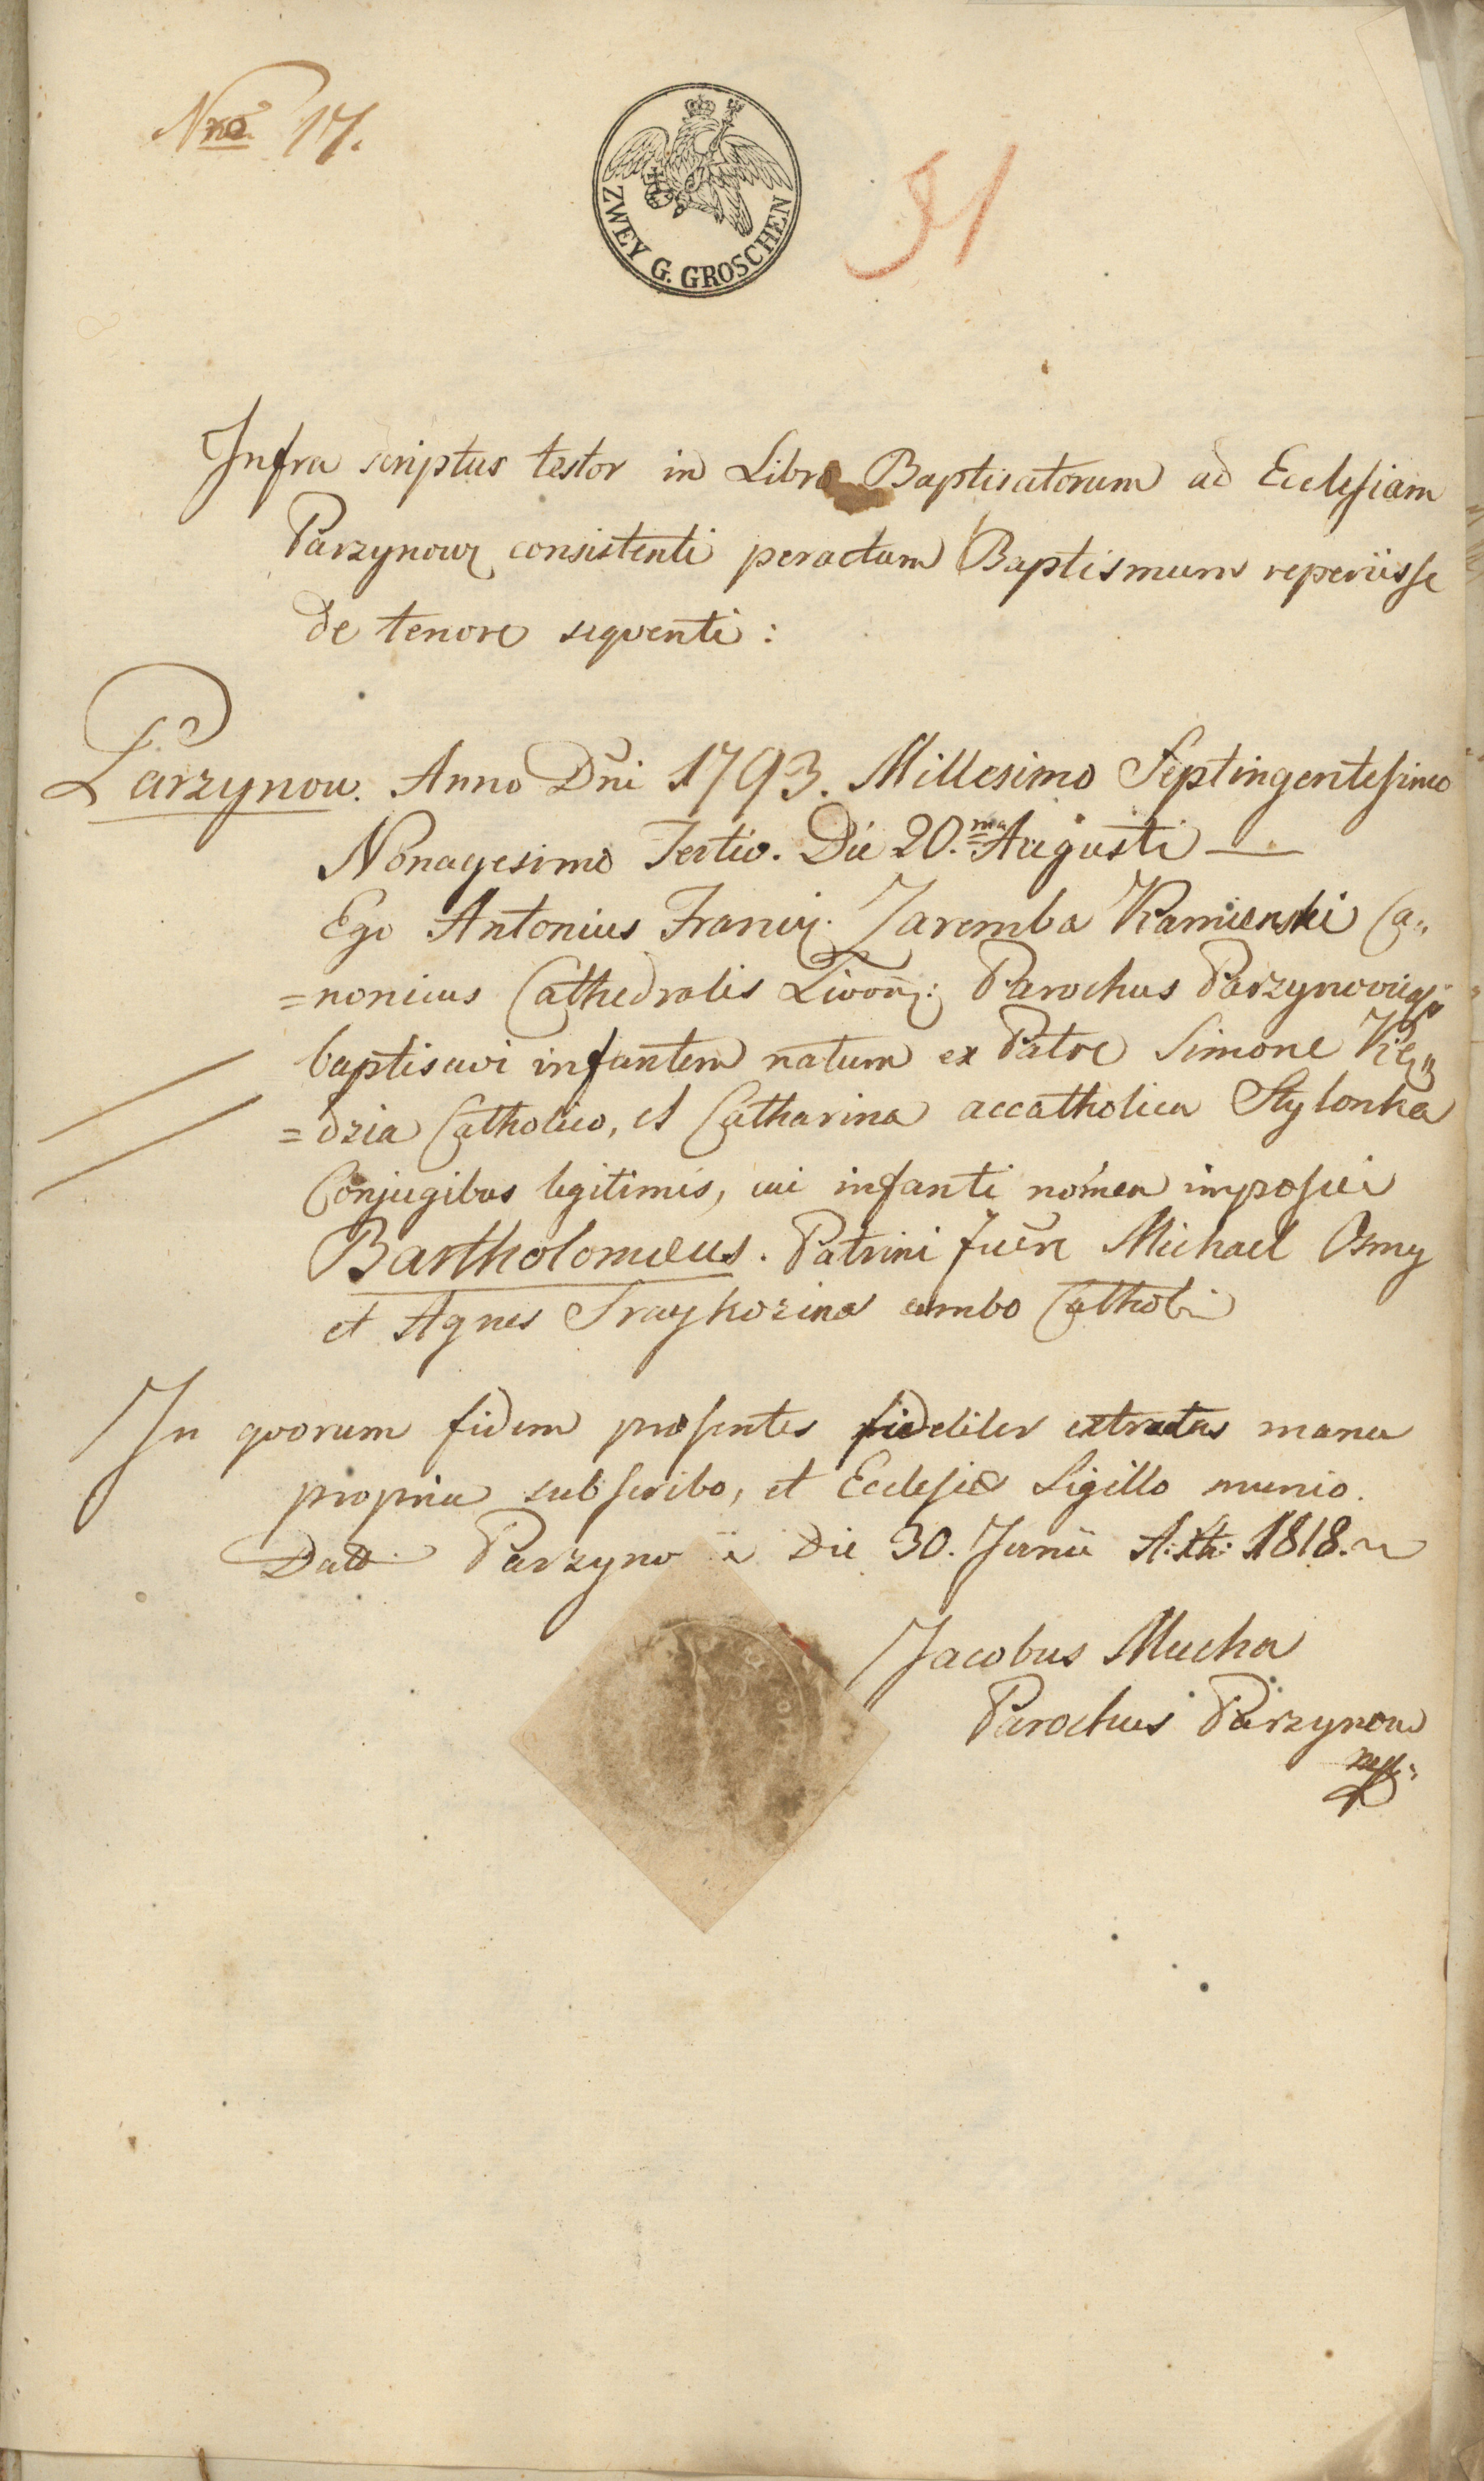 Nro 17.
ZWEY G. GROSCHEN
31
Infra scriptus testor in Libro Baptisatorum ad Ecclesiam
Parzynow consistenti peractum Baptismum reperiisse
de tenore seqventi:
Parzynow. Anno Dñi 1793. Millesimo Septingentesimo
Nonagesimo Tertio. Die 20.ma Augusti —
Ego Antonius Zaremba Kamienski Ca„
=nonicus Cathedralis Livoñ: Parochus
baptisavi infantem natum ex Patre Simone Kię„
=dzia Catholico, et Catharina accatholica Stylonka
Conjugibus legitimis, cui infanti nomen imposui
Bartholomæus. Patrini fuere Michael Osmy
et Agnes ambo Catholi
In qvorum fidem præsentes fideliter extractas manu
propria subscribo, et Ecclesiæ Sigillo munio.
Datt. Parzyno Die 30. Junii 1818.
Jacobus Mucha
Parochus Parzynow